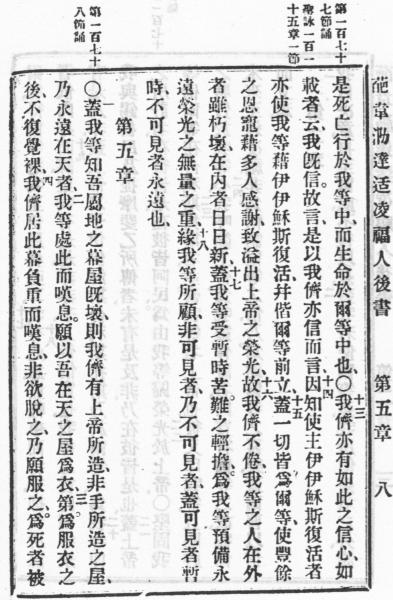 葩韋泐達适凌福人後書 第五章 八
第一百七十
七節誦
聖詠一百一
十五章一節
第一百七十
八節誦
是死亡行於我等中、而生命於爾等中也。〇十三我儕亦有如此之信心、如
載者云、我旣信、故言、是以我儕亦信而言、十四因知使主伊伊穌斯復活者
亦使我等藉伊伊穌斯復活、幷偕爾等前立、十五蓋一切皆爲爾等、使豐餘
之恩寵、藉多人感謝、致溢出上帝之榮光、十六故我儕不倦、我等之人在外
者雖朽壞、在內者日日新、十七蓋我等受暫時苦難之輕擔、爲我等預備永
遠榮光之無量之重、十八緣我等所顧、非可見者、乃不可見者、蓋可見者暫
時、不可見者永遠也、
第五章
〇一蓋我等知吾㞐地之幕屋旣壞、則我儕有上帝所造、非手所造之屋、
乃永遠在天者、二我等處此而嘆息、願以吾在天之屋爲衣、三第爲服衣之
後、不復覺裸、四我儕居此幕負重而嘆息、非欲脫之、乃願服之、爲死者被